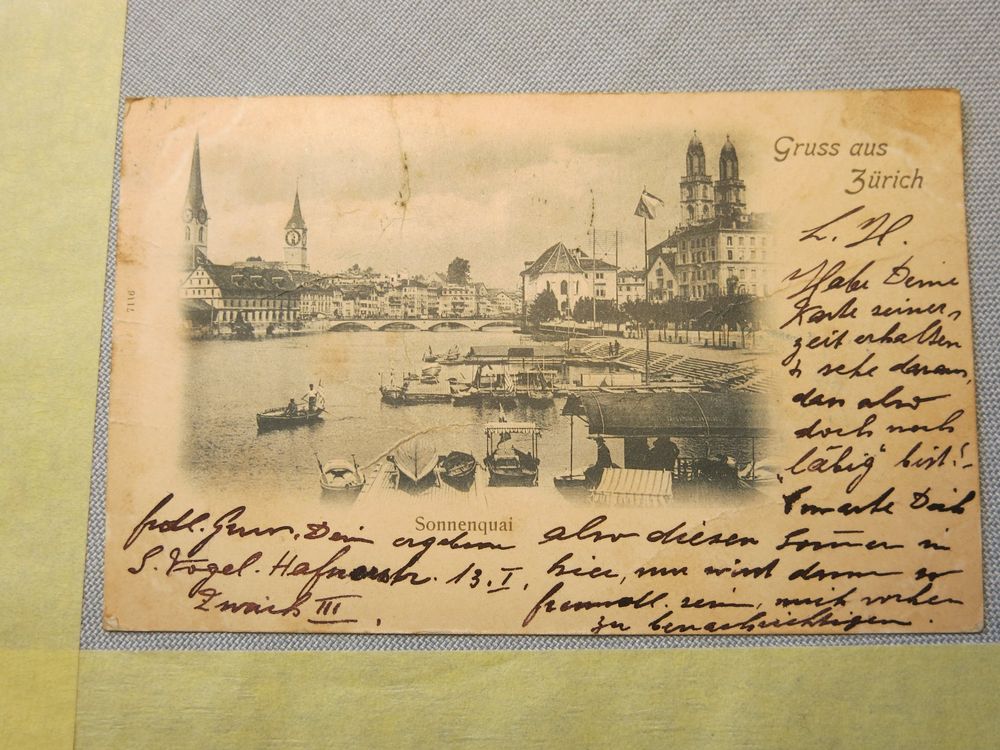 Gruss aus
Zürich
7116
L. H.
Habe Deine
Karte seiner-
zeit erhalten
& sehe daraus,
dass also
doch noch
"läbig" bist!-
Erwarte Dich
also diesen Sommer in
hier, nur wirst dann so
freundl. sein, mich vorher
zu benachrichtigen.
Sonnenquai
frdl. Gruss, Dein ergebener
S. Vogel. Hafnerstr. 13. I.
Zürich III.